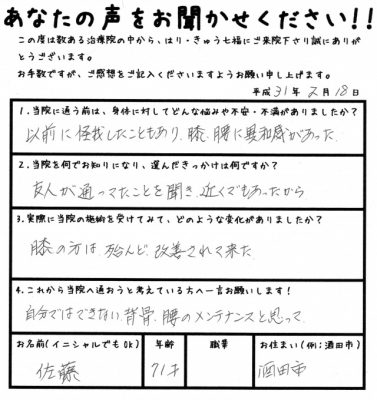 あなたの声をお聞かせください!!
この度は数ある治療院の中から、はり・きゅう七福にご来院下さり誠にありが
とうございます。
お手数ですが、ご感想をご記入くださいますようお願い申し上げます。
平成31年2月18日
1.当院に通う前は、身体に対してどんな悩みや不安・不満がありましたか?
以前に怪我したこともあり、膝、腰に異和感があった。
2.当院を何でお知りになり、選んだきっかけは何ですか?
友人が通ってたことを聞き、近くでもあったから
3.実際に当院の施術を受けてみて、どのような変化がありましたか?
膝の方は、殆んど、改善されて来た。
4.これから当院へ通おうと考えている方へ一言お願いします!
自分ではできない、背骨、腰のメンテナンスと思って
お名前(イニシャルでもOK) 年齢 職業 お住まい(例:酒田市)
佐藤 71才 酒田市